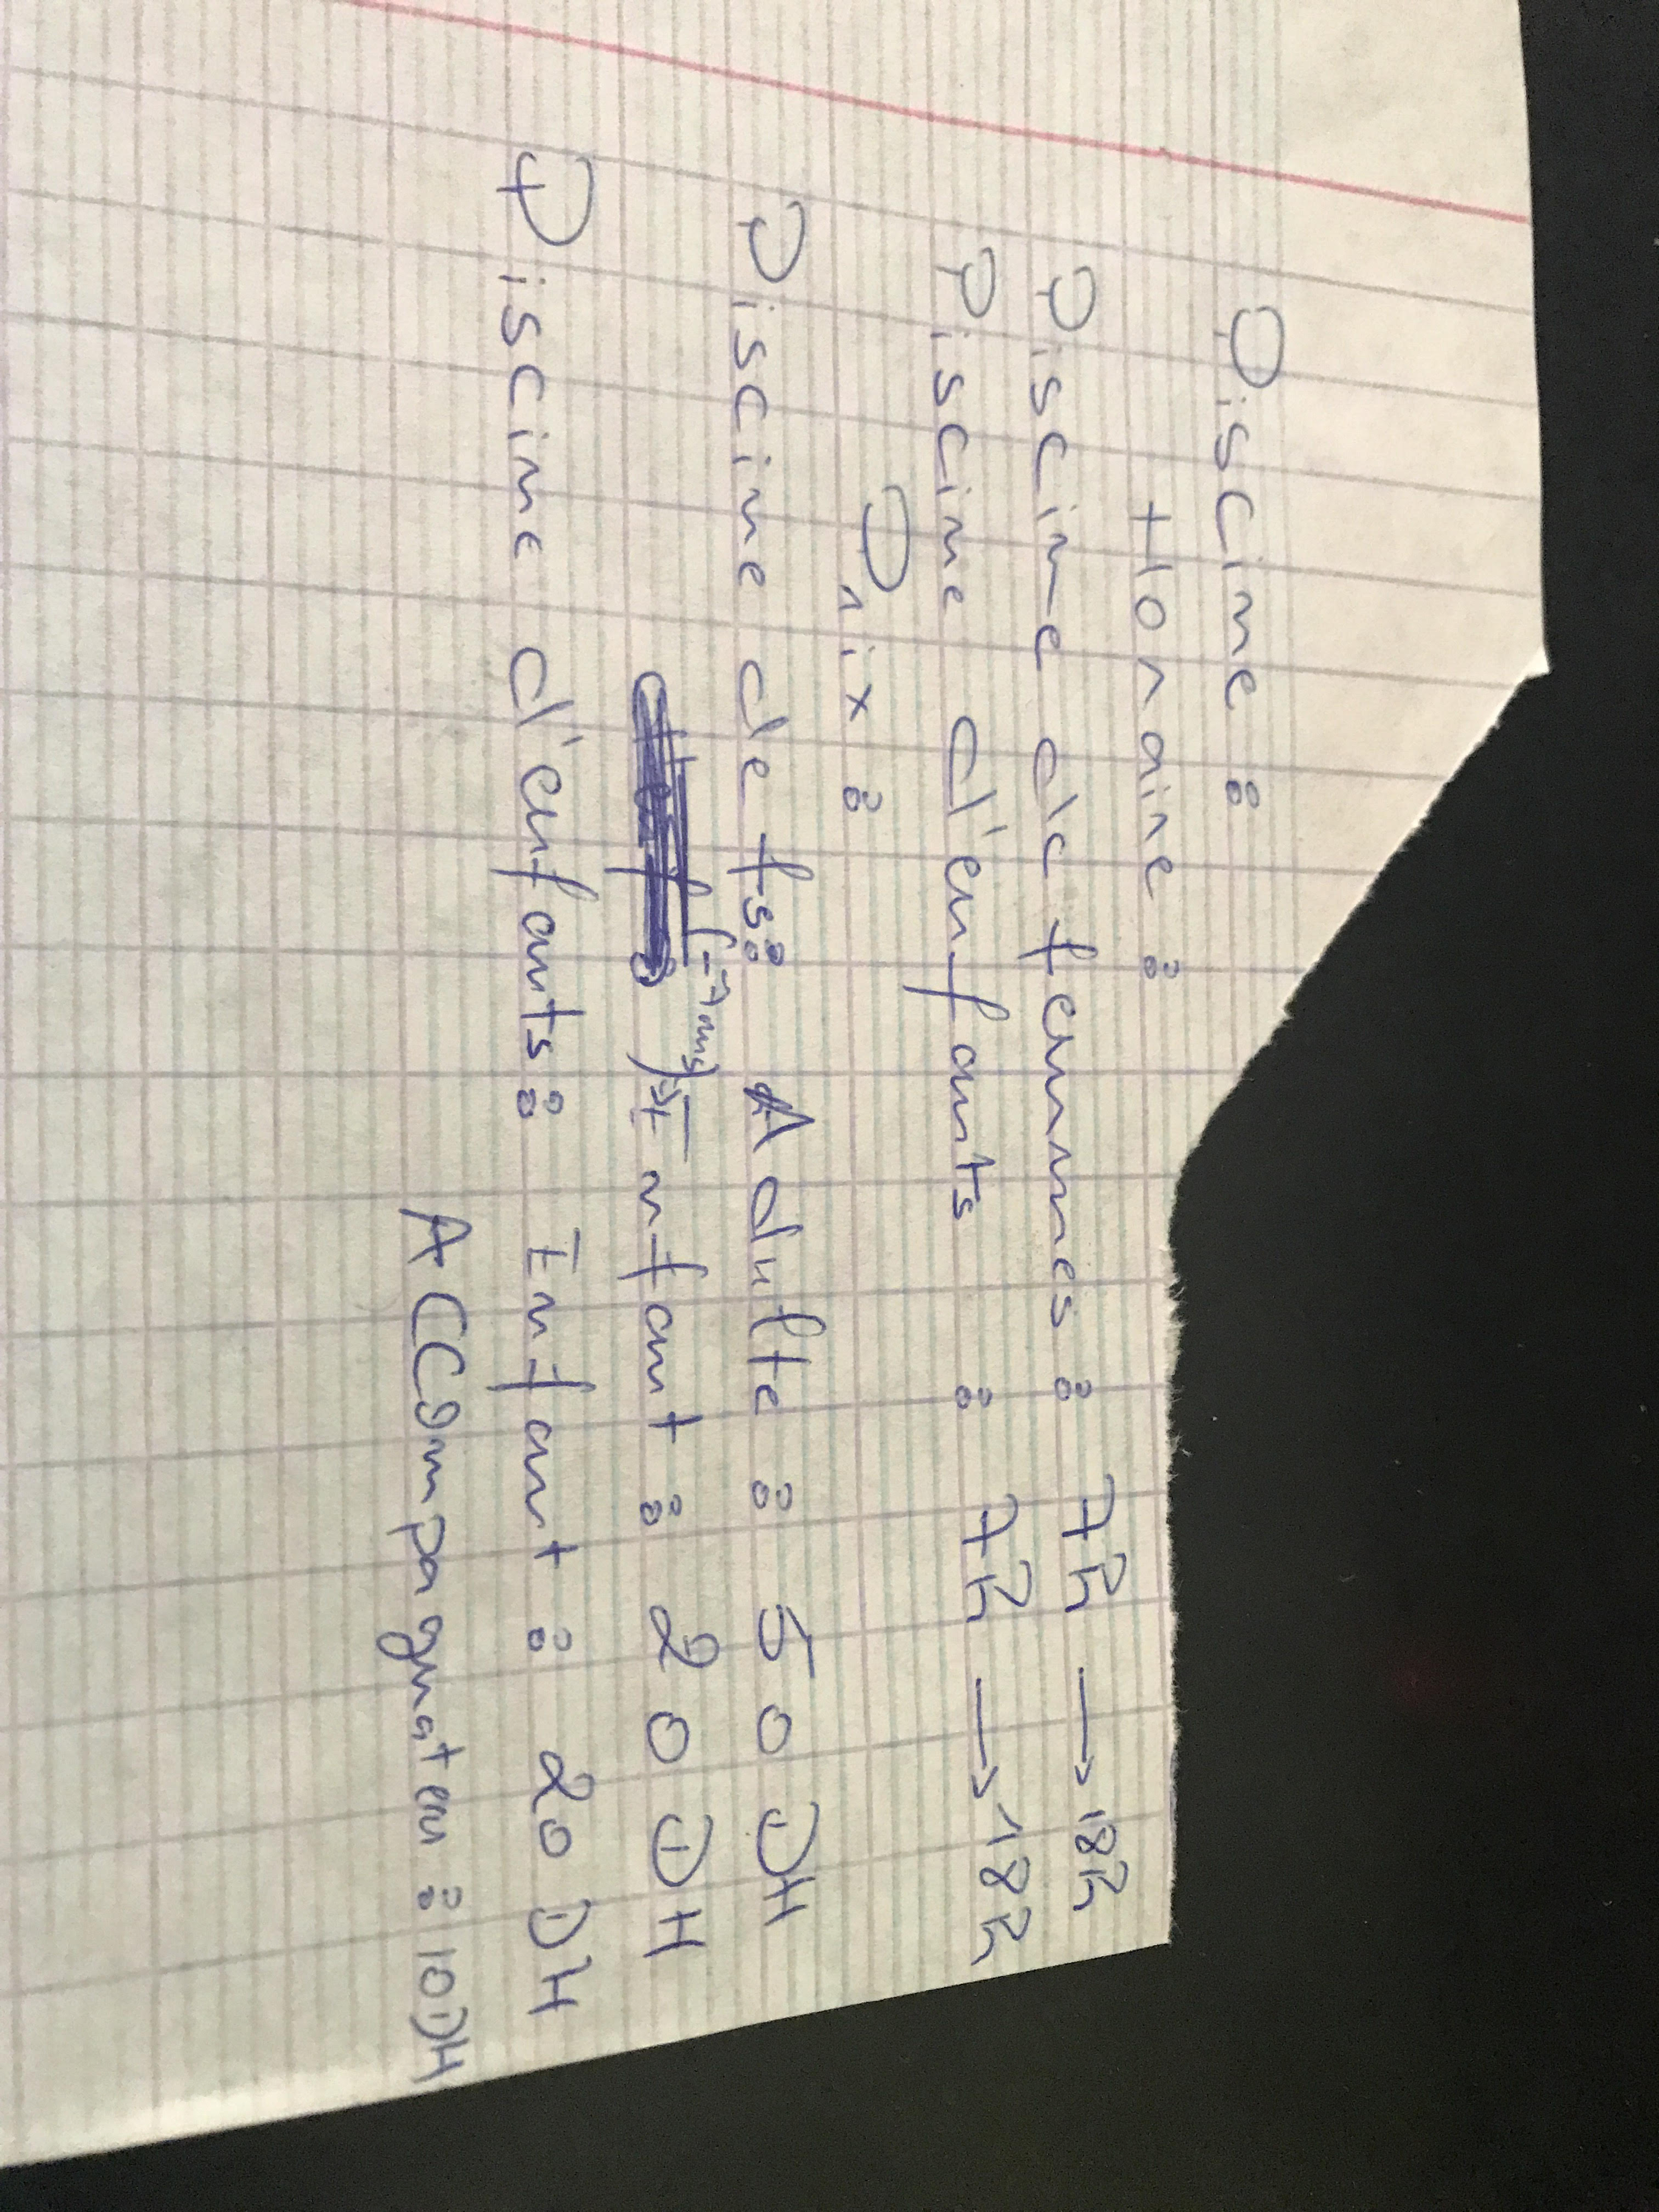 Piscine :
Horaire :
Piscine de femmes : 7h → 18h
Piscine d'enfants : 7h → 18h
Prix :
Piscine de fs : Adulte : 50 DH
(-7ans) Enfant : 20 DH
Piscine d'enfants : Enfant : 20 DH
Accompagnateur : 10DH